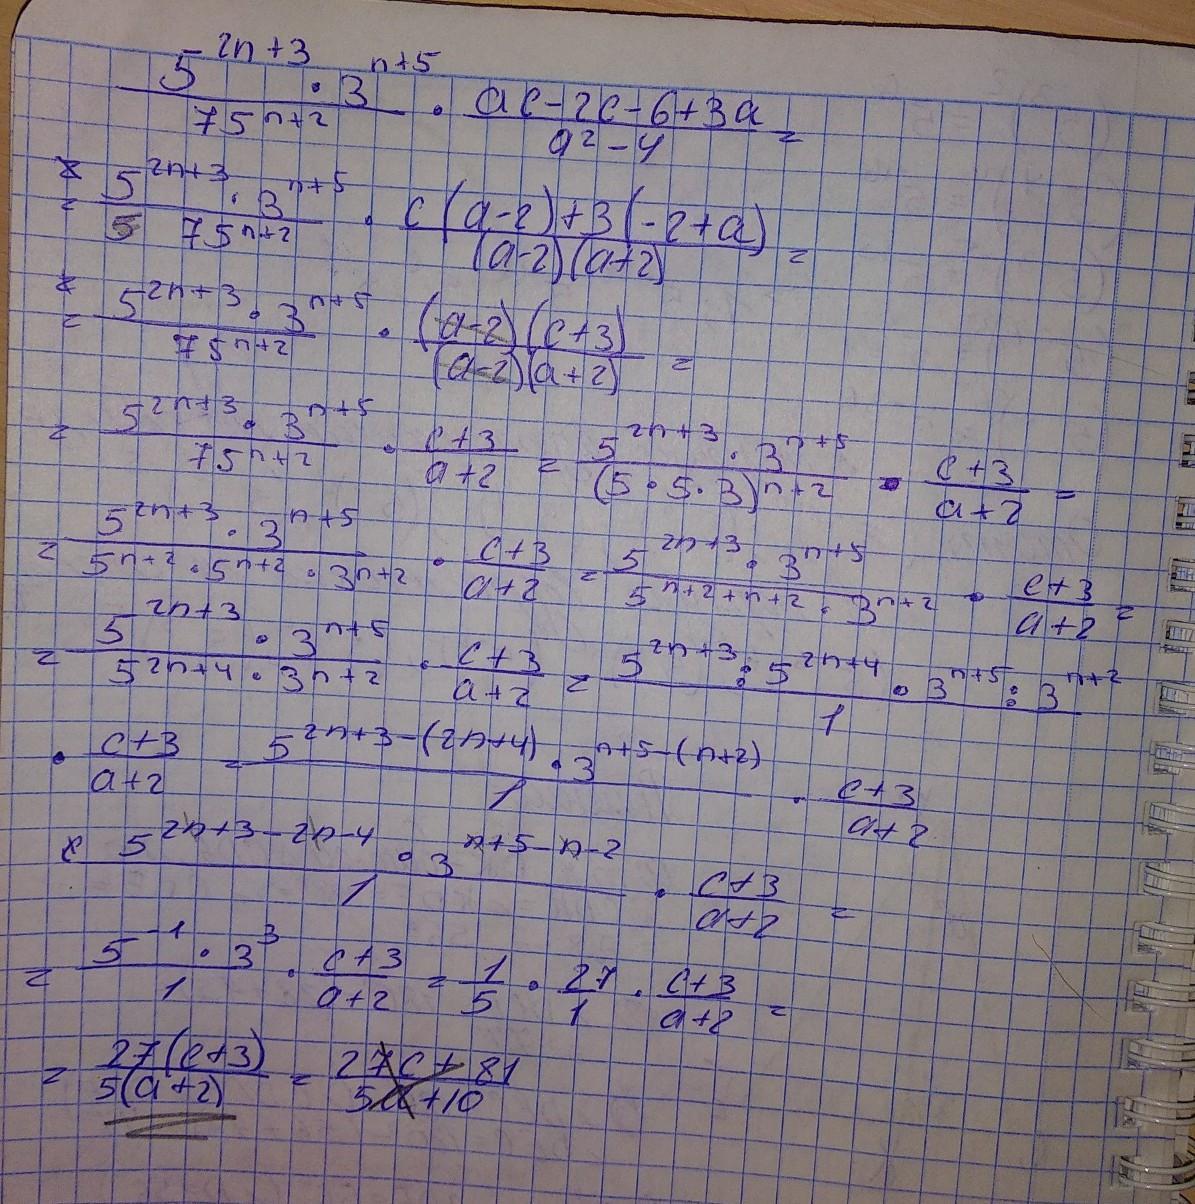 5^{2n+3} · 3^{n+5} / 75^{n+2} · (ac-2c-6+3a) / (a²-4) =
= 5^{2n+3} · 3^{n+5} / 75^{n+2} · (c(a-2)+3(-2+a)) / ((a-2)(a+2)) =
= 5^{2n+3} · 3^{n+5} / 75^{n+2} · ((a-2)(c+3)) / ((a-2)(a+2)) =
= 5^{2n+3} · 3^{n+5} / 75^{n+2} · (c+3)/(a+2) = 5^{2n+3} · 3^{n+5} / (5·5·3)^{n+2} · (c+3)/(a+2) =
= 5^{2n+3} · 3^{n+5} / (5^{n+2} · 5^{n+2} · 3^{n+2}) · (c+3)/(a+2) = 5^{2n+3} · 3^{n+5} / (5^{n+2+n+2} · 3^{n+2}) · (c+3)/(a+2) =
= 5^{2n+3} · 3^{n+5} / (5^{2n+4} · 3^{n+2}) · (c+3)/(a+2) = (5^{2n+3} : 5^{2n+4} · 3^{n+5} : 3^{n+2}) / 1
· (c+3)/(a+2) = 5^{2n+3-(2n+4)} · 3^{n+5-(n+2)} / 1 · (c+3)/(a+2)
5^{2n+3-2n-4} · 3^{n+5-n-2} / 1 · (c+3)/(a+2) =
= 5^{-1} · 3^{3} / 1 · (c+3)/(a+2) = 1/5 · 27/1 · (c+3)/(a+2) =
= 27(c+3) / 5(a+2) = (27c+81) / (5a+10)